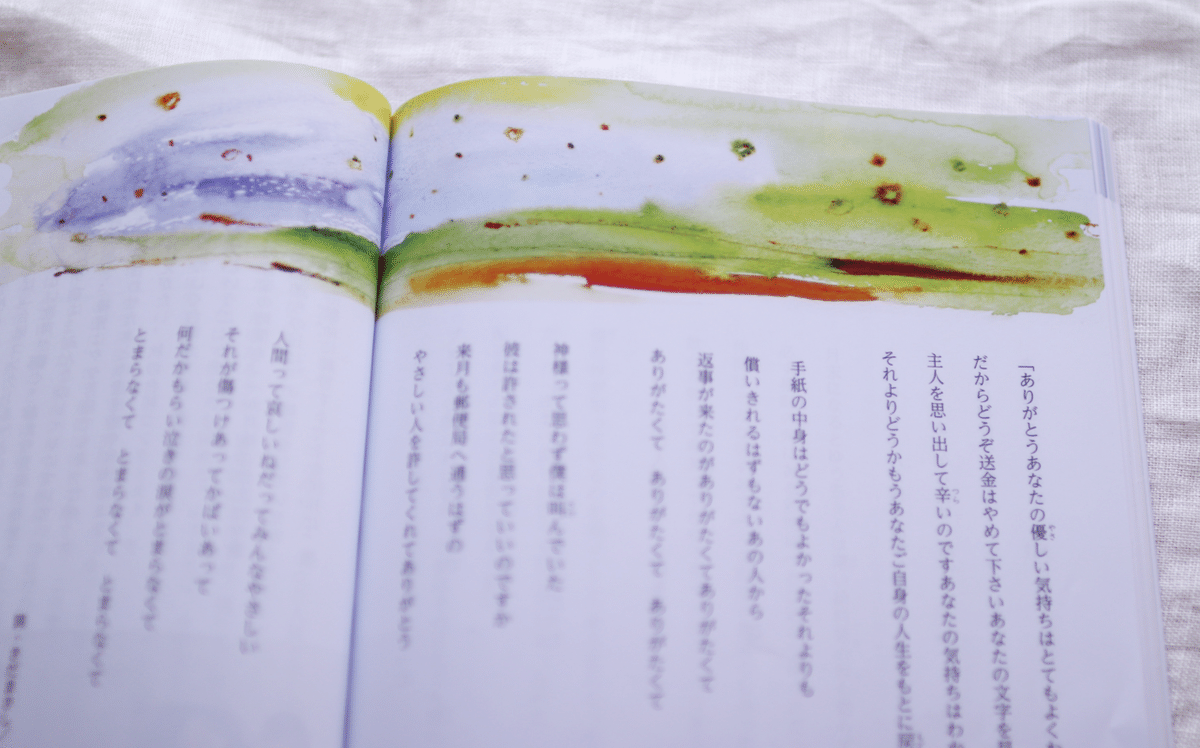 「ありがとうあなたの優しい気持ちはとてもよく
だからどうぞ送金はやめて下さいあなたの文字を
主人を思い出して辛いのですあなたの気持ちはわ
それよりどうかもうあなたご自身の人生をもとに
手紙の中身はどうでもよかったそれよりも
償いきれるはずもないあの人から
返事が来たのがありがたくてありがたくて
ありがたくて　ありがたくて　ありがたくて
神様って思わず僕は叫んでいた
彼は許されたと思っていいのですか
来月も郵便局へ通うはずの
やさしい人を許してくれてありがとう
人間って哀しいねだってみんなやさしい
それが傷つけあってかばいあって
何だかもらい泣きの涙がとまらなくて
とまらなくて　とまらなくて　とまらなくて